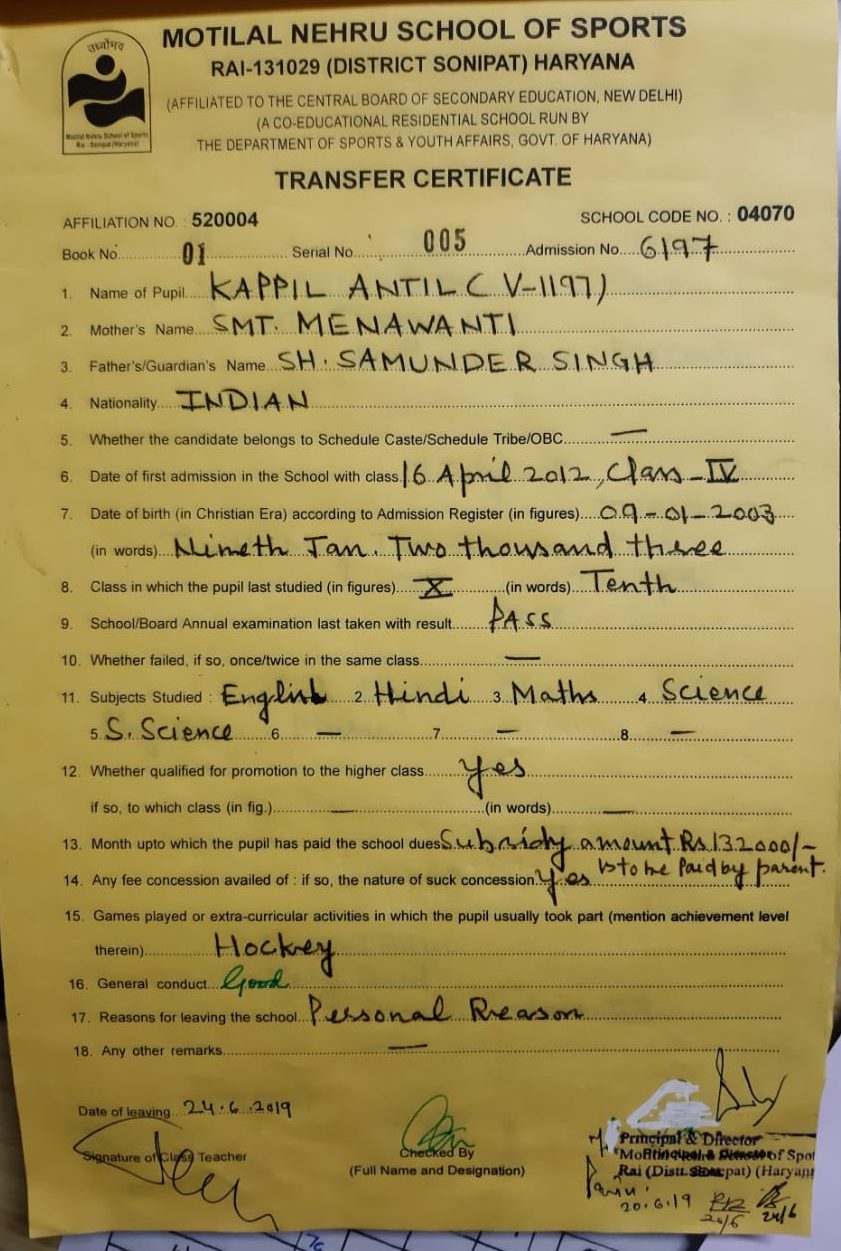 उर्ध्वोभव
Motilal Nehru School of Sports
Rai - Sonipat (Haryana)
MOTILAL NEHRU SCHOOL OF SPORTS
RAI-131029 (DISTRICT SONIPAT) HARYANA
(AFFILIATED TO THE CENTRAL BOARD OF SECONDARY EDUCATION, NEW DELHI)
(A CO-EDUCATIONAL RESIDENTIAL SCHOOL RUN BY
THE DEPARTMENT OF SPORTS & YOUTH AFFAIRS, GOVT. OF HARYANA)
TRANSFER CERTIFICATE
AFFILIATION NO. : 520004 SCHOOL CODE NO. : 04070
Book No. 01 Serial No. 005 Admission No. 6197
1. Name of Pupil KAPPIL ANTIL ( V-1197)
2. Mother's Name SMT. MENAWANTI
3. Father's/Guardian's Name SH. SAMUNDER SINGH
4. Nationality INDIAN
5. Whether the candidate belongs to Schedule Caste/Schedule Tribe/OBC —
6. Date of first admission in the School with class 16 April 2012, Class - IV
7. Date of birth (in Christian Era) according to Admission Register (in figures) 09-01-2003
(in words) Nineth Jan. Two thousand three
8. Class in which the pupil last studied (in figures) X (in words) Tenth
9. School/Board Annual examination last taken with result PASS
10. Whether failed, if so, once/twice in the same class —
11. Subjects Studied : English 2. Hindi 3. Maths 4. Science
5. S. Science 6 — 7 — 8 —
12. Whether qualified for promotion to the higher class yes
if so, to which class (in fig.) — (in words) —
13. Month upto which the pupil has paid the school dues Subsidy amount Rs 132000/-
is to be Paid by parent.
14. Any fee concession availed of : if so, the nature of suck concession. Yes
15. Games played or extra-curricular activities in which the pupil usually took part (mention achievement level
therein) Hockey
16. General conduct Good
17. Reasons for leaving the school Personal Reason
18. Any other remarks —
Date of leaving 24.6.2019
Signature of Class Teacher
Checked By
(Full Name and Designation)
Principal & Director
of Spo
Rai (Distt. Sonepat) (Haryan
20.6.19
24/6